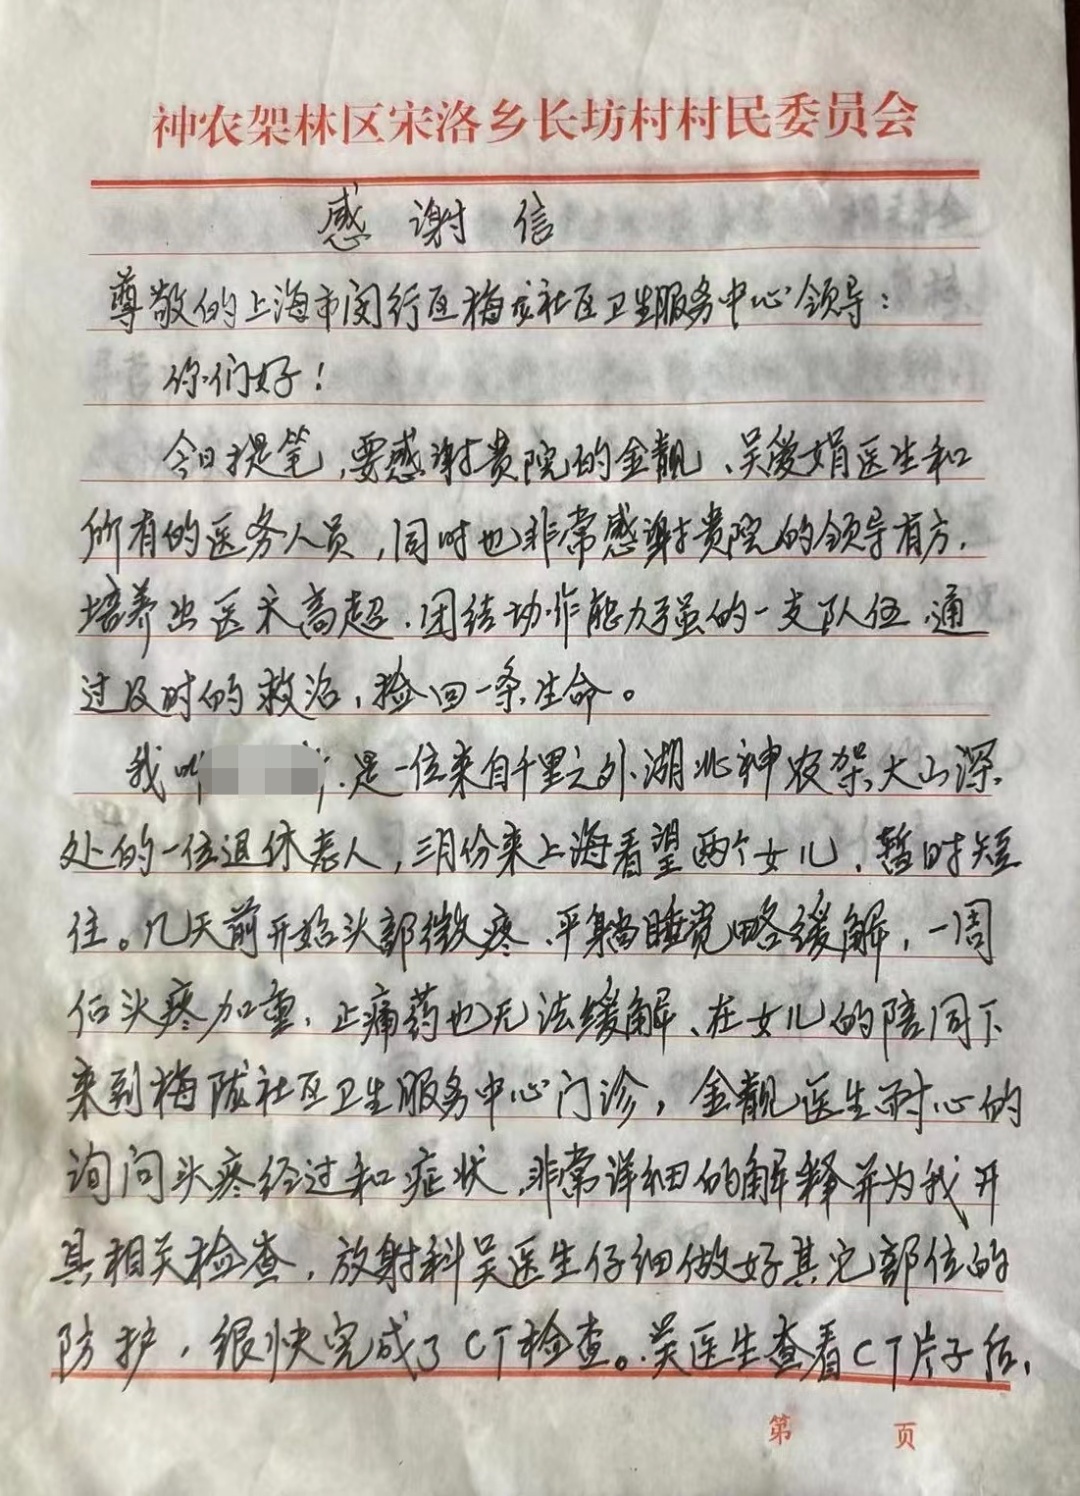 神农架林区宋洛乡长坊村村民委员会
感谢信
尊敬的上海市闵行区梅陇社区卫生服务中心领导：
你们好！
今日提笔，要感谢贵院的金靓、吴爱娟医生和
所有的医务人员，同时也非常感谢贵院的领导有方，
培养出医术高超、团结协作能力强的一支队伍，通
过及时的救治，捡回一条生命。
我叫 ，是一位来自千里之外湖北神农架大山深
处的一位退休老人，三月份来上海看望两个女儿，暂时短
住。几天前开始头部微疼、平躺睡觉略缓解，一周
后头疼加重，止痛药也无法缓解、在女儿的陪同下
来到梅陇社区卫生服务中心门诊，金靓医生耐心的
询问头疼经过和症状，非常详细的解释并为我开
具相关检查，放射科吴医生仔细做好其它部位的
防护，很快完成了CT检查。吴医生查看CT片子后，
第 页